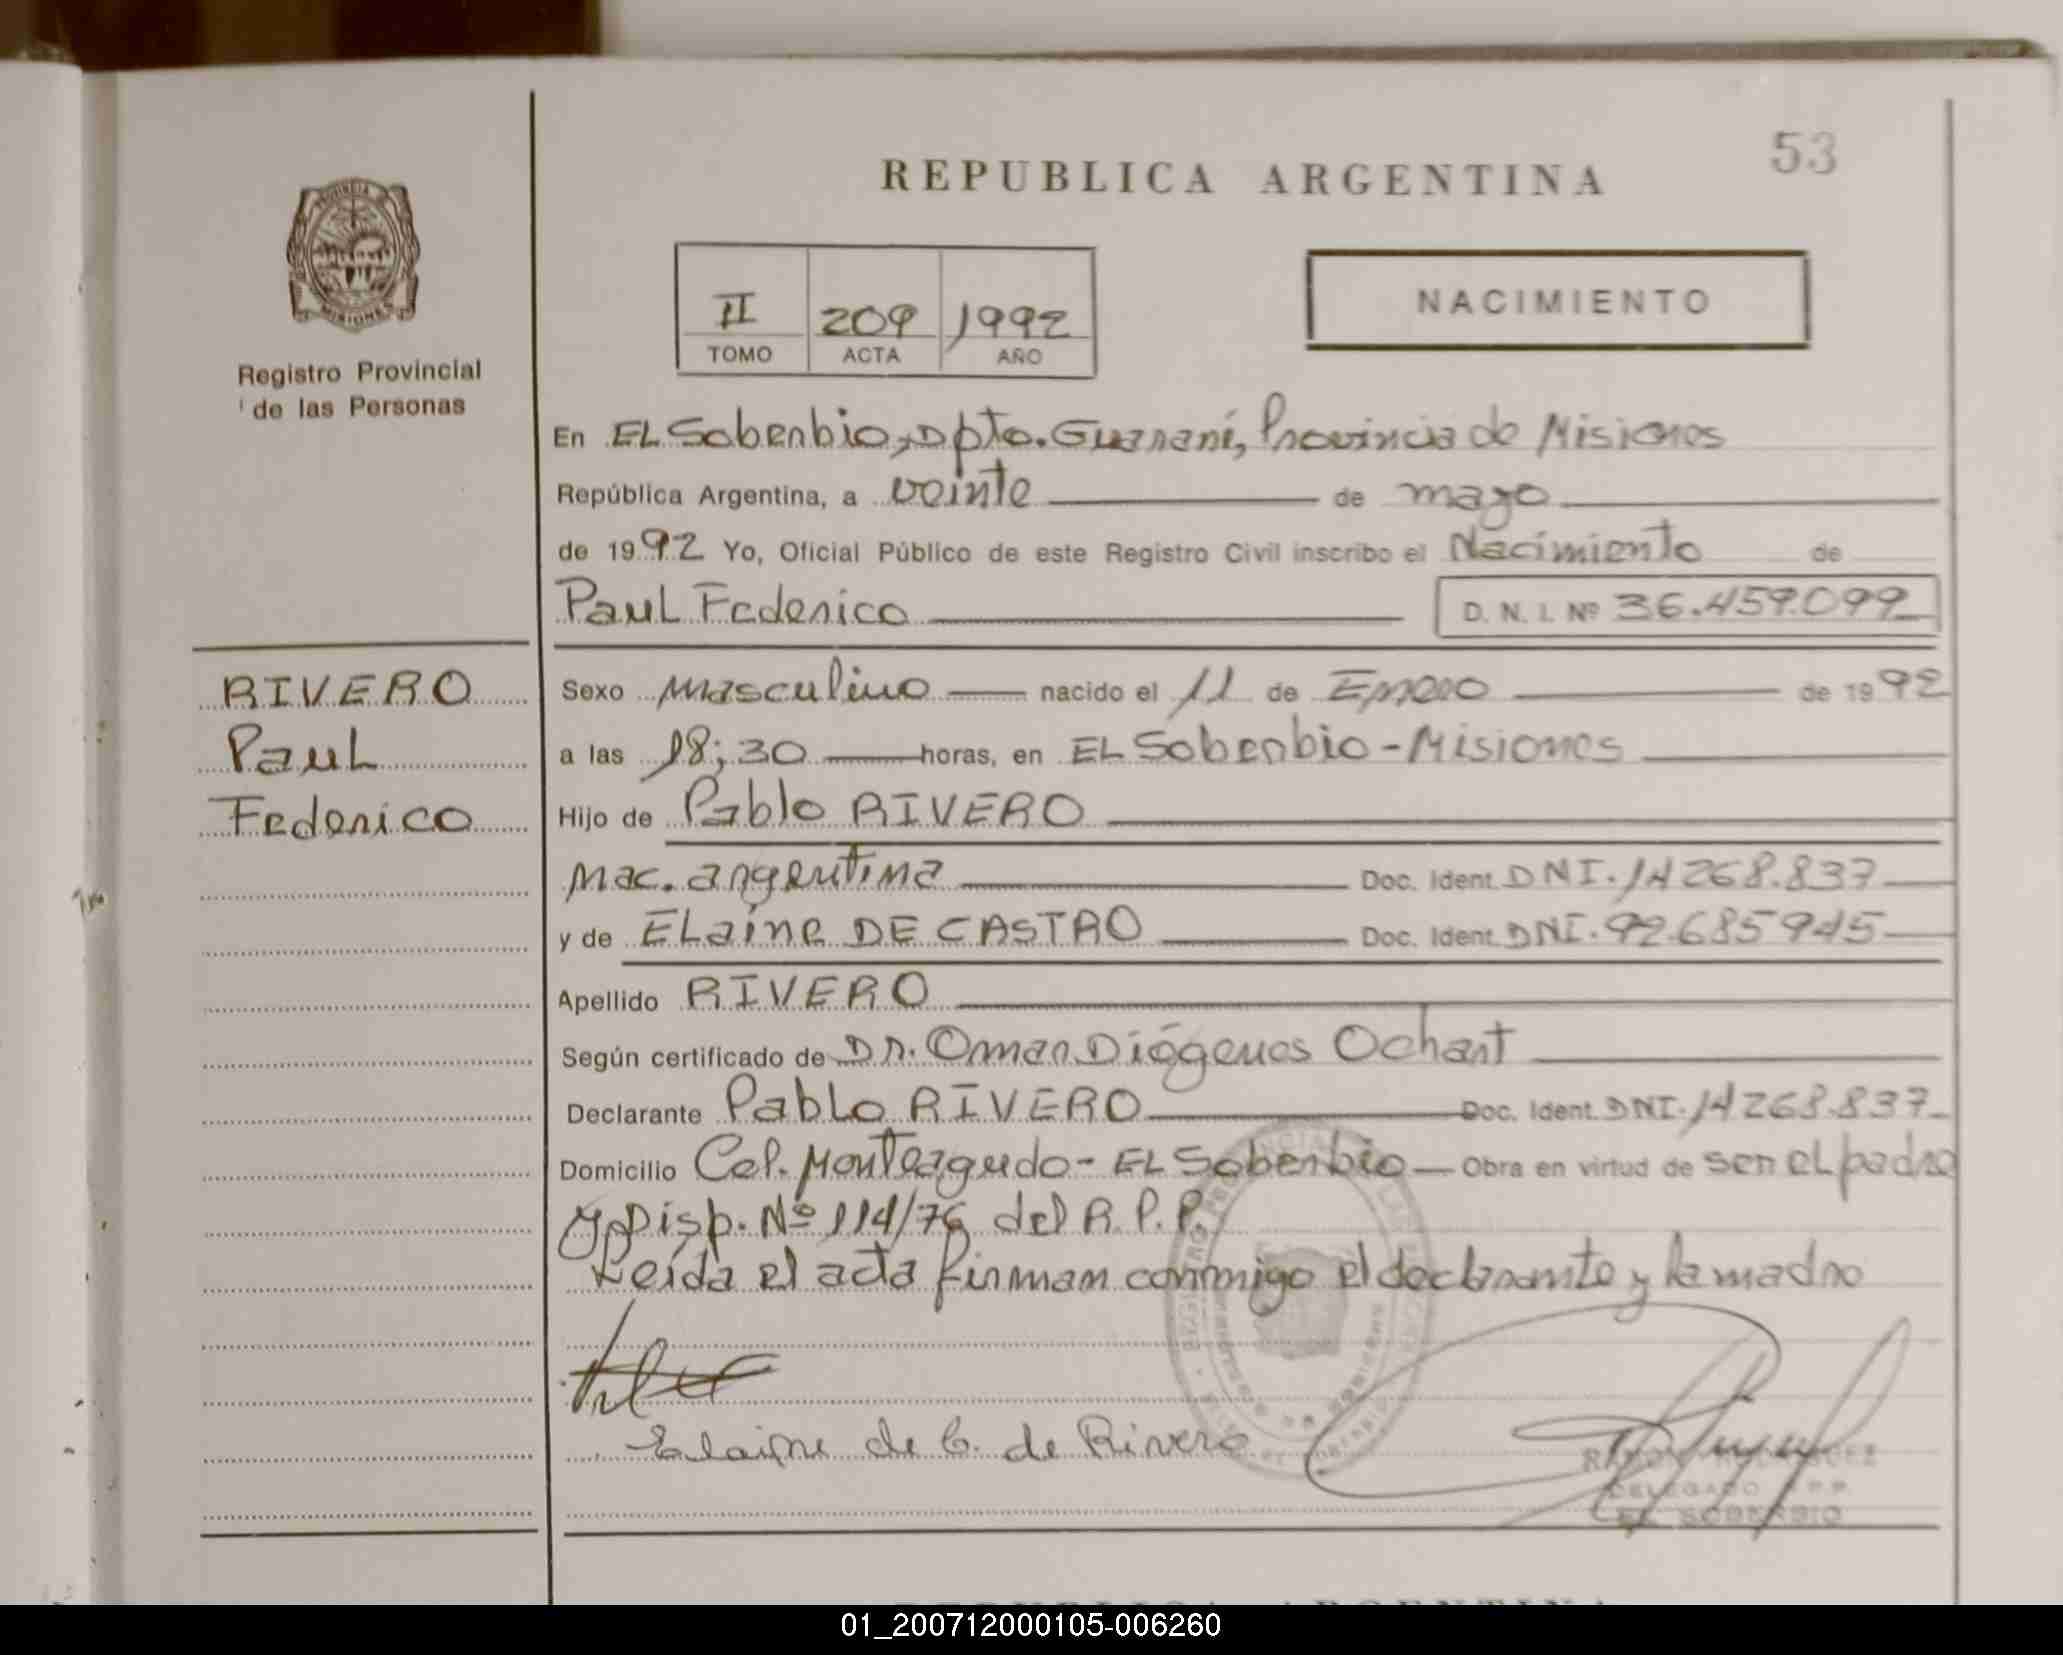 53
REPUBLICA ARGENTINA
PROVINCIA
MISIONES
Registro Provincial
de las Personas
II 209 1992
TOMO ACTA AÑO
NACIMIENTO
En EL Soberbio, Dpto. Guaraní, Provincia de Misiones
República Argentina, a veinte de mayo
de 1992 Yo, Oficial Público de este Registro Civil inscribo el Nacimiento de
Paul Federico D. N. I. Nº 36.459.099
RIVERO
Paul
Federico
Sexo masculino nacido el 11 de Enero de 1992
a las 18;30 horas, en EL Soberbio - Misiones
Hijo de Pablo RIVERO
nac. argentina Doc. Ident. DNI. 14 268.837
y de ELaine DE CASTRO Doc. Ident. DNI. 92.685945
Apellido RIVERO
Según certificado de Dr. Omar Diógenes Ochart
Declarante PabLo RIVERO Doc. Ident. DNI. 14 268.837
Domicilio Col. Monteagudo - EL Soberbio Obra en virtud de ser eL padre
y Disp. Nº 114/76 del R.P.P.
Leída el acta firman conmigo el declarante y la madre
Elaine de C. de Rivero
RAMON RODRIGUEZ
DELEGADO R.P.P.
EL SOBERBIO
REPUBLICA ARGENTINA
01_200712000105-006260